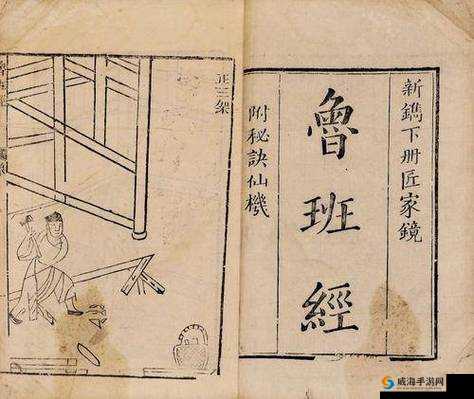 新鐫下册匠家鏡
魯班經
附秘訣仙機
正三架
威海手游网